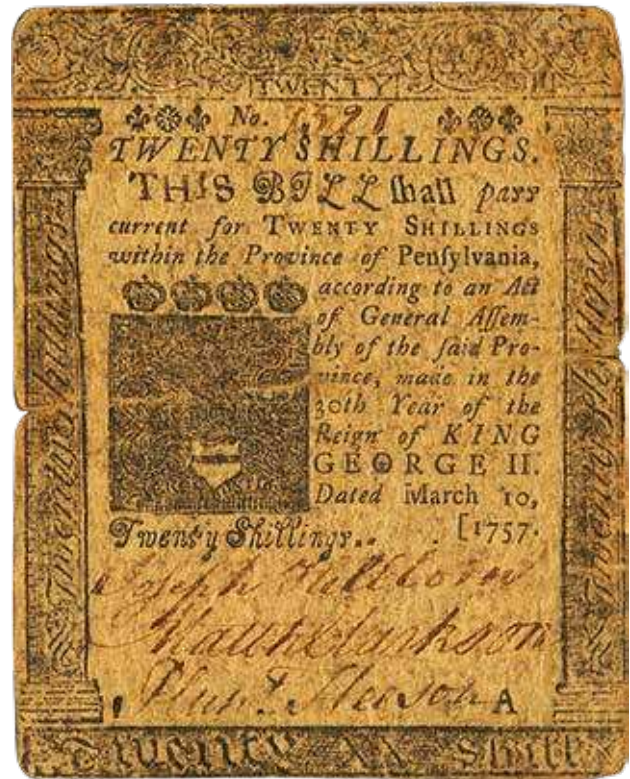 TWENTY
No.
TWENTY SHILLINGS.
THIS BILL ſhall paſs
current for TWENTY SHILLINGS
within the Province of Penſylvania,
according to an Act
of General Aſſem-
bly of the ſaid Pro-
vince, made in the
30th Year of the
Reign of KING
GEORGE II.
Dated March 10,
Twenty Shillings.. . [1757.
Joseph
Matth Clarkson
A
Twenty XX Shill
Twenty Shillings
Twenty Shillings